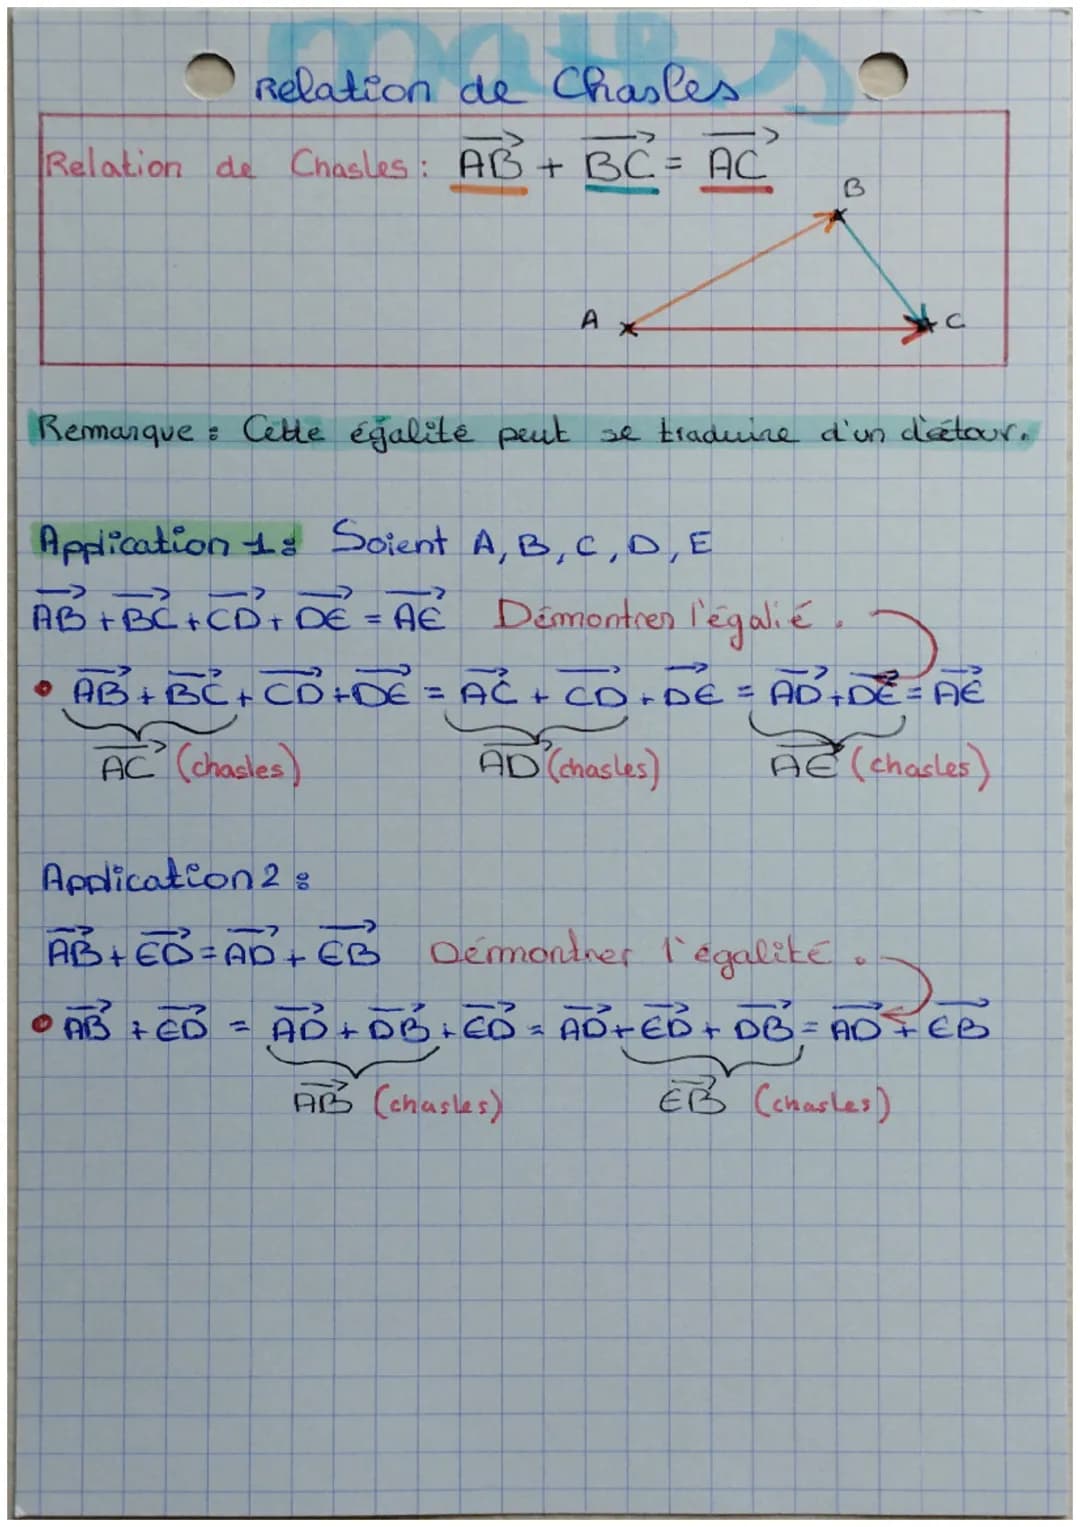 maths
Relation de Chasles
Relation de Chasles : AB⃗ + BC⃗ = AC⃗
B
A
C
Remarque : Cette égalité peut se traduire d'un d'étour.
Application 1 : Soient A, B, C, D, E
AB⃗ + BC⃗ + CD⃗ + DE⃗ = AE⃗ Démontrer l'égalié.
• AB⃗ + BC⃗ + CD⃗ + DE⃗ = AC⃗ + CD⃗ + DE⃗ = AD⃗ + DE⃗ = AE⃗
AC⃗ (chasles) AD⃗ (chasles) AE⃗ (chasles)
Application 2 :
AB⃗ + ED⃗ = AD⃗ + EB⃗ Démontrer l'égalité.
• AB⃗ + ED⃗ = AD⃗ + DB⃗ + ED⃗ = AD⃗ + ED⃗ + DB⃗ = AD⃗ + EB⃗
AB⃗ (chasles) EB⃗ (chasles)